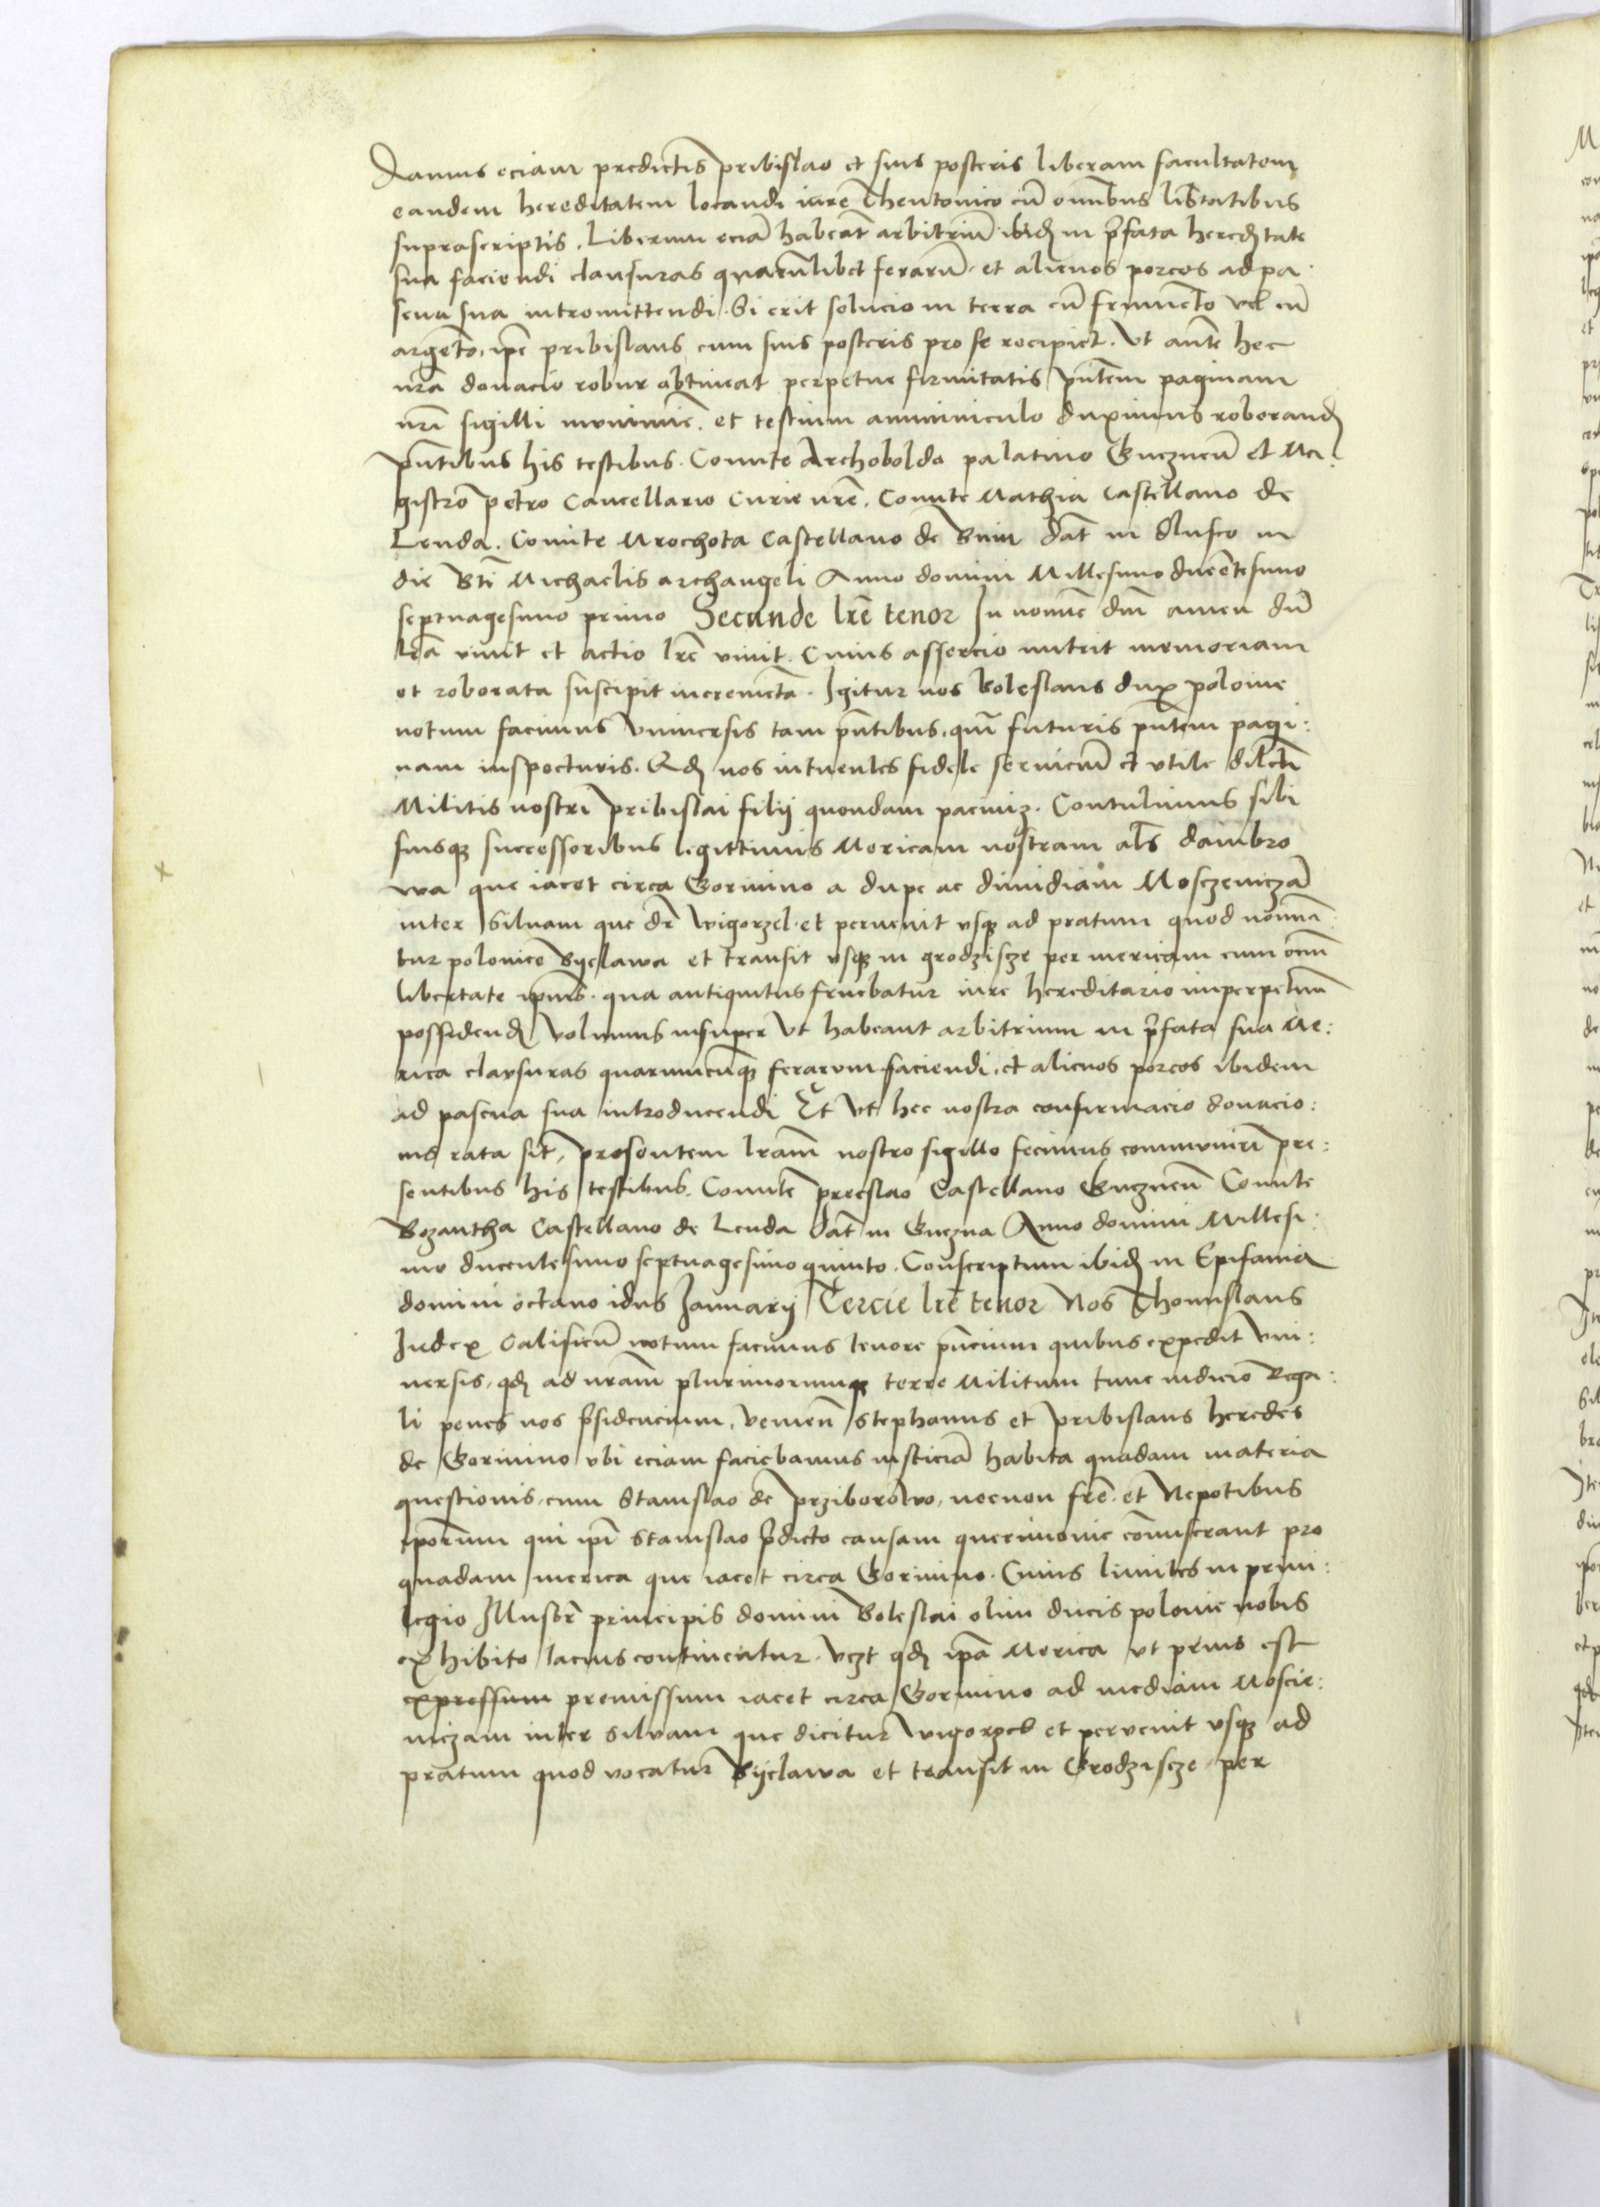 Damus eciam predictis pribislao et suis posteris liberam facultatem
eandem hereditatem locandi iure Theutonico cū omībus libtatibus
suprascriptis. Liberum eciā habeāt arbitriū ibid in p̄fata hereditate
sua faciendi clausuras quarūlibet ferarū et alienos porcos ad pa:
scua sua intromittendi. Si erit solucio in terra cū frumēto vel cū
argēto, ip̄e pribislaus cum suis posteris pro se recipiet. Ut aūte hec
nr̄a donacio robur obtineat perpetue firmitatis p̄ntem paginam
nr̄i sigilli munimīe. et testium amminiculo duximus roborand
p̄ntibus his testibus. Comite Archoboldo palatino Gneznen̄ et Ma:
gistro petro Cancellario Curie nr̄e. Comite Mathia Castellano de
Lenda. Comite Mrochota Castellano de Bnin Dat̄ in Slusco in
die Bti Michaelis archangeli Anno domini Millesimo ducētesimo
septuagesimo primo Secunde lr̄e tenor In nomīe dn̄i amen dū
lr̄a viuit et actio lr̄e viuit. Cuius assercio nutrit memoriam
et roborata suscipit incremēta. Igitur nos Boleslaus dux polonie
notum facimus Vniuersis tam p̄ntibus, quā futuris p̄ntem pagi:
nam inspecturis. Qd nos intuentes fidele seruiciū et vtile dilcti
Militis nostri pribislai filij quondam pacuiz. Contulimus sibi
suisq successoribus legittimis Mericam nostram als dambro
wa que iacet circa Gorinino a dupe ac dimidiam Mosczeniczā
inter siluam que dr̄ wigorzel. et peruenit vsq ad pratum quod nomīa:
tur polonice Byelawa et transit vsq in grodzisze per mericam cum oīm
libertate ip̄ius. qua antiquitus fruebatur iure hereditario imperpetuū
possidend Volumus insuper Vt habeant arbitrium in p̄fata sua Me:
rica clausuras quarumcūq ferarum faciendi, et alienos porcos ibidem
ad pascua sua introducendi Et Vt hec nostra confirmacio donacio:
nis rata sit, presentem lr̄am nostro sigillo fecimus communiri pre:
sentibus his testibus. Comite preeslao Castellano Gneznen̄ Comite
Bozantha Castellano de Lenda dat̄ in Gnezna Anno domini Millesi:
mo ducentesimo septuagesimo quinto. Conscriptum ibid in Epifania
domini octauo idus Januarij Tercie lr̄e tenor Nos Thomislaus
Iudex Calisien̄ notum facimus tenore p̄ncium quibus expedit vni:
uersis, qd ad nr̄am plurimorumq terre Militum tunc iudicio Rega:
li penes nos p̄sidencium, venien̄ Stephanus et pribislaus heredes
de Gorinino vbi eciam faciebamus iusticiā habita quadam materia
questionis, cum Stanislao de prziborowo, necnon fr̄e et Nepotibus
ip̄orum qui ip̄i Stanislao p̄dicto causam querimonie cōmiserant pro
quadam merica que iacet circa Gorinino. Cuius limites in priui:
legio Illustr̄ principis domini Boleslai olim ducis polonie nobis
exhibito lacius continentur. Vczt qd ip̄a Merica vt prius est
expressum premissum iacet circa Gorinino ad mediam Moscie:
niczam inter siluam que dicitur wigorzel et peruenit vsq ad
pratum quod vocatur Byelawa et transit in Grodzisze per